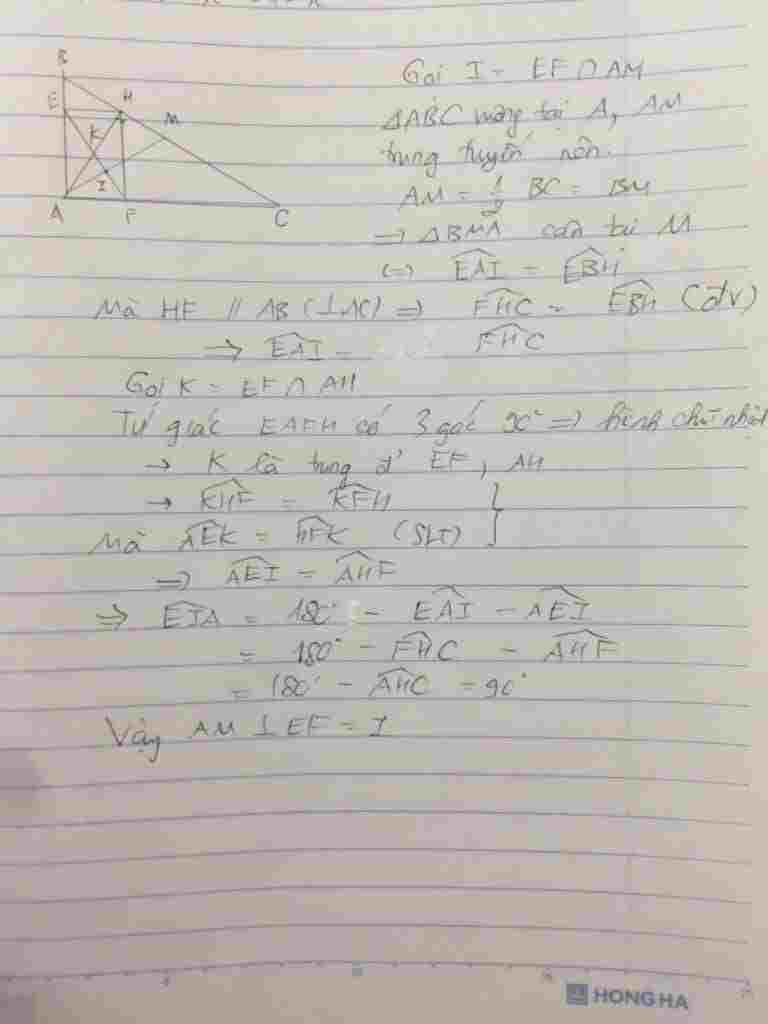 B
E
H
M
K
I
A
F
C
Gọi I = EF ∩ AM
ΔABC vuông tại A, AM
trung tuyến nên.
AM = 1/2 BC = BM
=> ΔBMA cân tại M
(=) EAI^ = EBH^
Mà HF // AB (⊥AC) => FHC^ = EBH^ (đv)
=> EAI^ = FHC^
Gọi K = EF ∩ AH
Tứ giác EAFH có 3 góc 90° => hình chữ nhật
→ K là trung đ' EF, AH
→ KHF^ = KFH^
Mà AEK^ = HFK^ (SLT)
=> AEI^ = AHF^
=> EIA^ = 180° - EAI^ - AEI^
= 180° - FHC^ - AHF^
= 180° - AHC^ = 90°
Vậy AM ⊥ EF = I
HONG HA